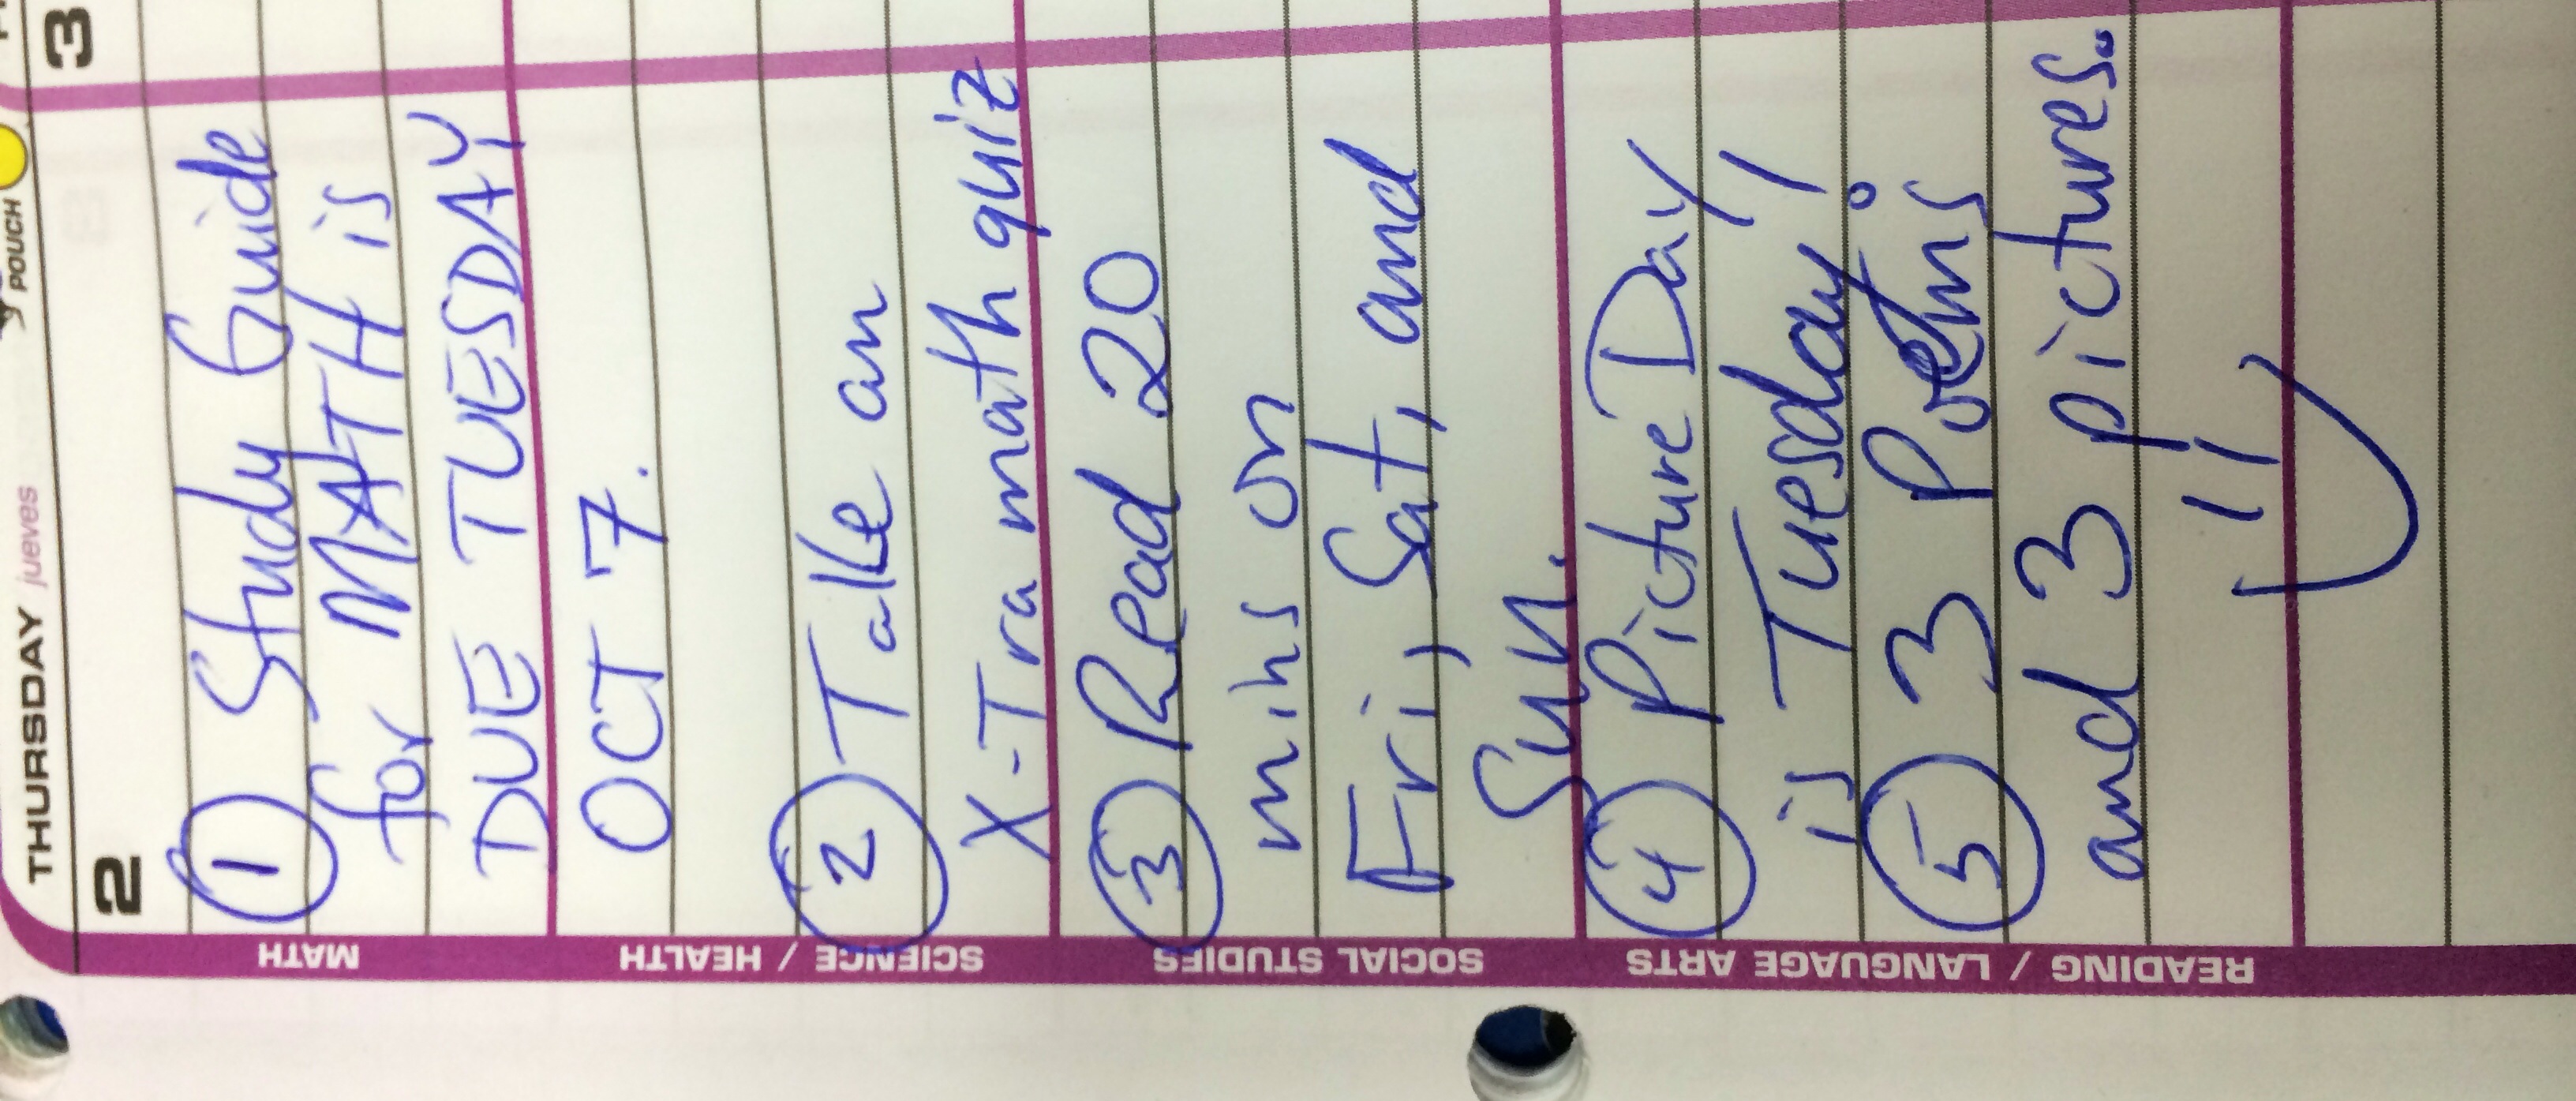 POUCH
THURSDAY jueves
2
3
① Study Guide
for MATH is
DUE TUESDAY
OCT 7.
② Take an
X-Tra math quiz
③ Read 20
mins on
Fri, Sat, and
Sun.
④ Picture Day
is Tuesday!
⑤ 3 Poems
and 3 pictures.
MATH
SCIENCE / HEALTH
SOCIAL STUDIES
READING / LANGUAGE ARTS